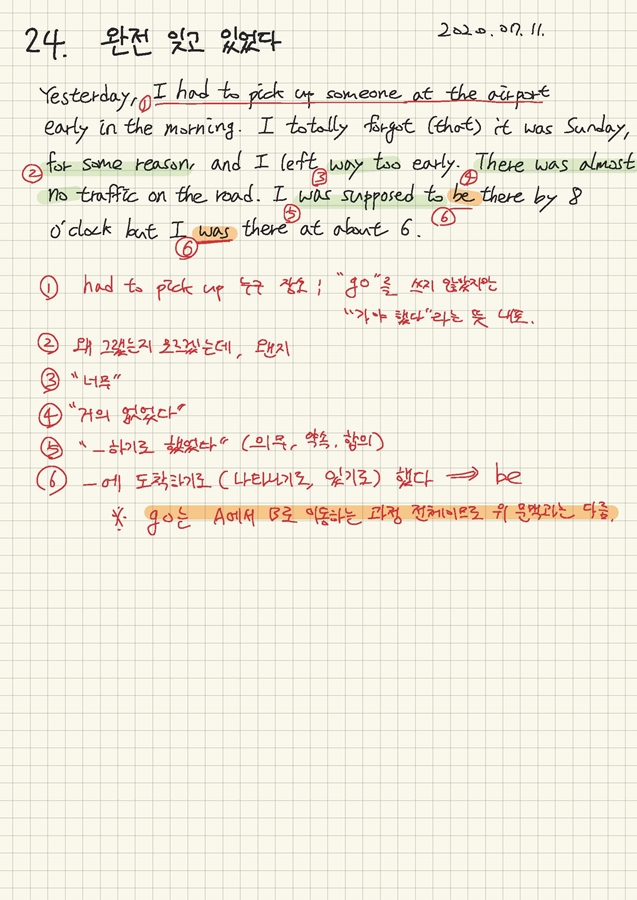 24. 완전 잊고 있었다
2020.07.11.
Yesterday, ① I had to pick up someone at the airport
early in the morning. I totally forgot (that) it was Sunday,
② for some reason, and I left ③ way too early. ④ There was almost
no traffic on the road. I ⑤ was supposed to ⑥ be there by 8
o'clock but I ⑥ was there at about 6.
① had to pick up 누구 장소 : "go"를 쓰지 않았지만
"가야 했다"라는 뜻 내포.
② 왜 그랬는지 모르겠는데, 왠지
③ "너무"
④ "거의 없었다"
⑤ "~하기로 했었다" (의무, 약속, 합의)
⑥ ~에 도착하기로 (나타나기로, 있기로) 했다 ⇒ be
※ go는 A에서 B로 이동하는 과정 전체이므로 위 문맥과는 다름.